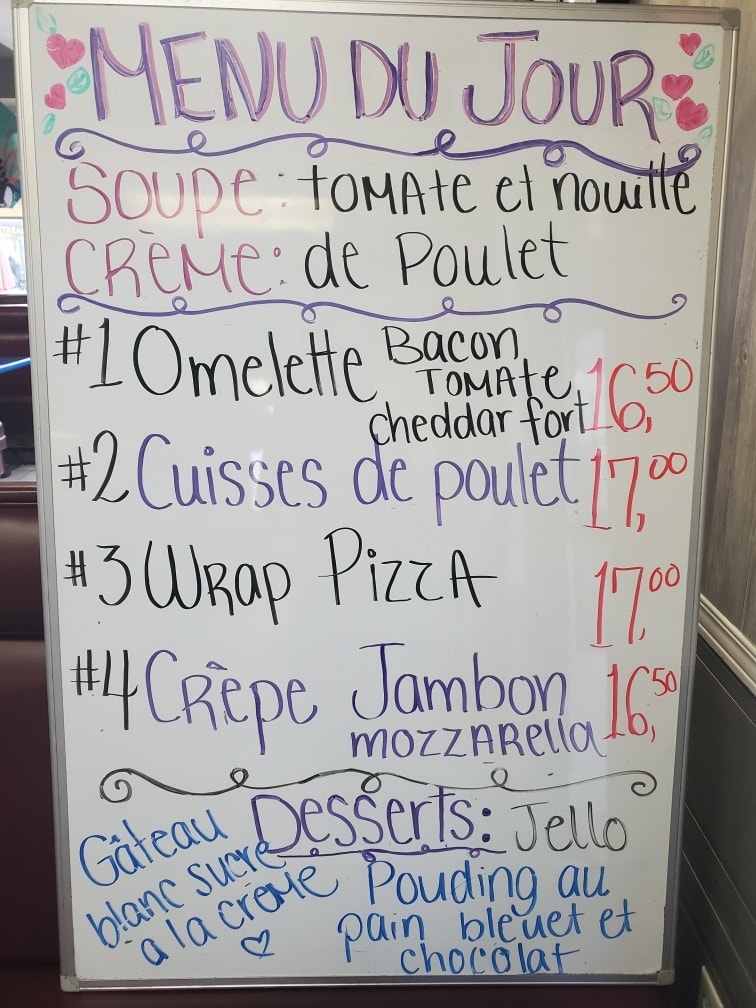 MENU DU JOUR
SOUPE: TOMATE et nouille
CRÈME: de Poulet
#1 Omelette Bacon
TOMATE
cheddar fort 16,50
#2 Cuisses de poulet 17,00
#3 WRap PizzA 17,00
#4 CRèpe Jambon
mozzARella 16,50
Desserts: Jello
Gâteau
blanc sucre
a la crème
Pouding au
pain bleuet et
chocolat